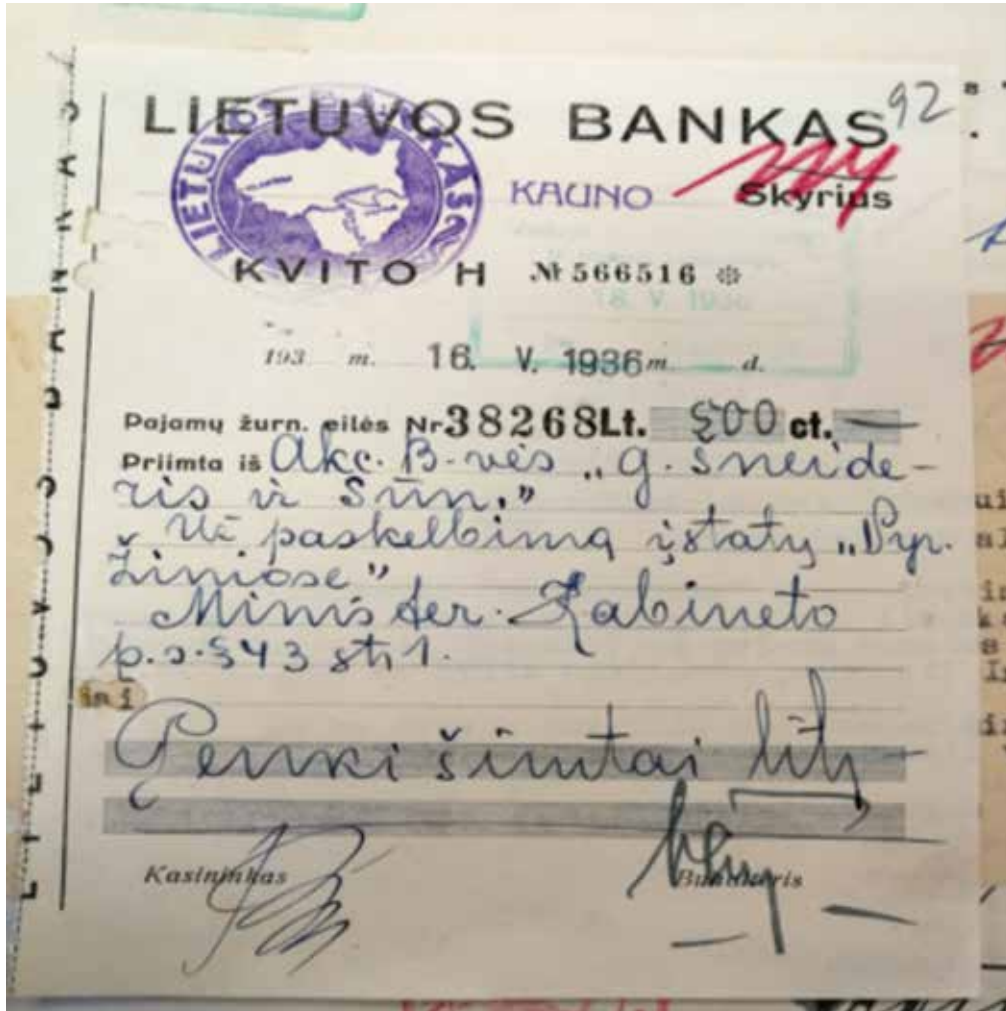 92
LIETUVOS BANKAS
LIETUVOS BANKAS
KAUNO Skyrius
KVITO H № 566516
18. V. 1936
193 m. 16. V. 1936 m. d.
Pajamų žurn. eilės Nr 38268 Lt. 500 ct. —
Priimta iš Akc. B-vės „G. Šneide-
ris ir Sūn."
Už paskelbimą įstatų „Vyr.
Žiniose"
Minister. Kabineto
p. s. § 43 str 1.
Penki šimtai litų
Kasininkas Buhalteris